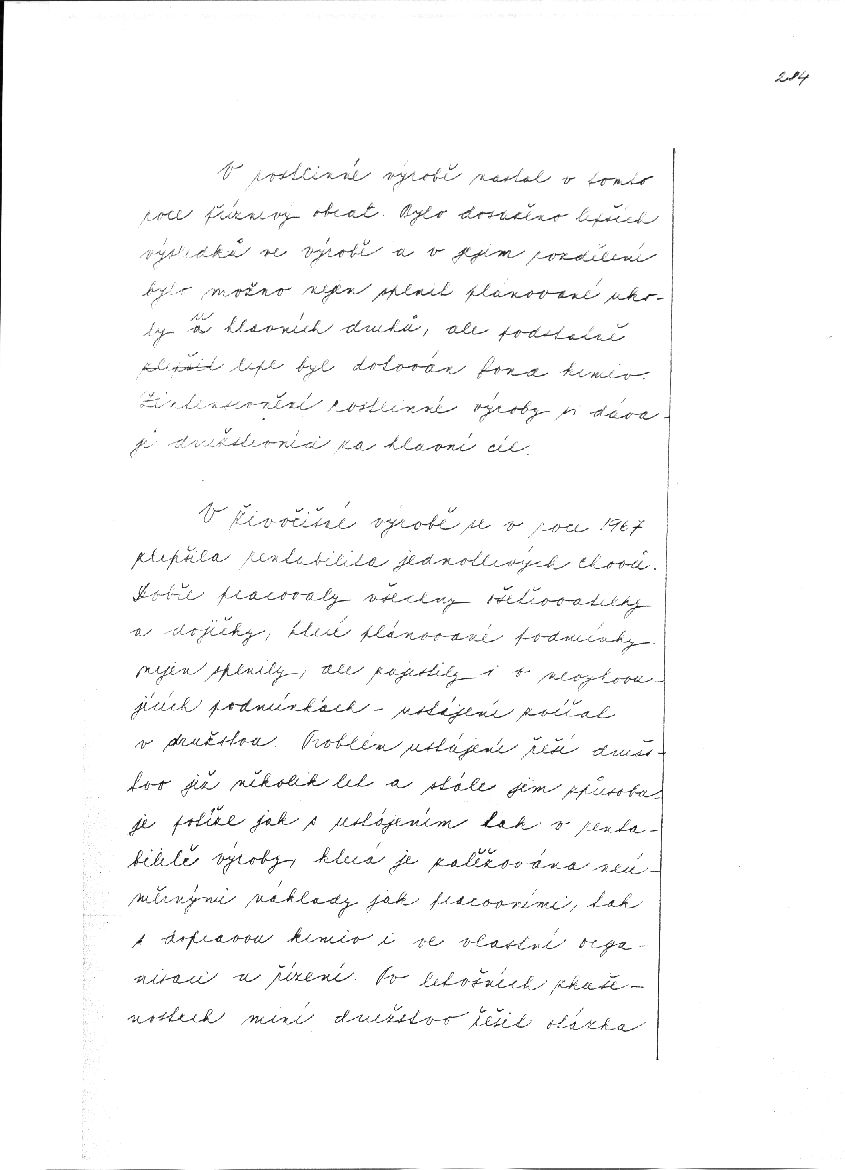 204
V rostlinné výrobě nastal v tomto
roce příznivý obrat. Bylo dosaženo lepších
výsledků ve výrobě a v jejím rozdělení
bylo možno nejen splnit plánované úko-
ly u hlavních druhů, ale podstatně
zlepšit lépe byl dotován fond krmiv.
Zintensivnění rostlinné výroby si dáva-
jí družstevníci za hlavní cíl.
V živočišné výrobě se v roce 1967
zlepšila rentabilita jednotlivých chovů.
Dobře pracovaly všechny ošetřovatelky
a dojičky, které plánované podmínky
nejen splnily, ale zajistily i v nevyhovu-
jících podmínkách – ustájení zvířat
v družstvu. Problém ustájení řeší družs-
tvo již několik let a stále jim způsobu-
je potíže jak s ustájením tak v renta-
bilitě výroby, která je zatěžována neú-
měrnými náklady jak pracovními, tak
s dopravou krmiv i ve vlastní orga-
nisaci a řízení. Po letošních zkuše-
nostech míní družstvo řešit otázku